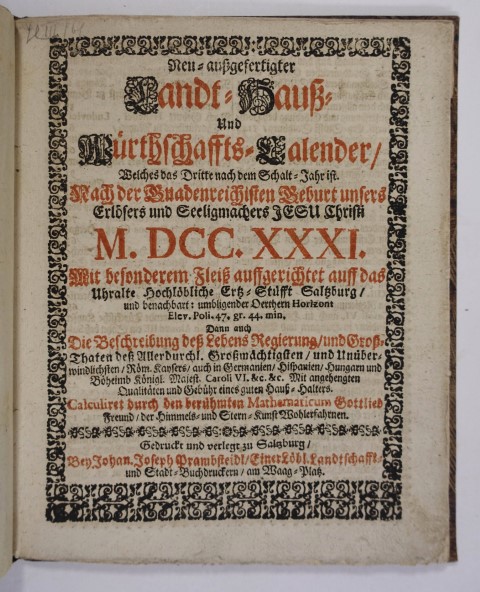 Neu-außgefertigter
Landt-Hauß-
Und
Würthschaffts-Calender/
Welches das Dritte nach dem Schalt-Jahr ist.
Nach der Gnadenreichisten Geburt unsers
Erlösers und Seeligmachers JESU Christi
M. DCC. XXXI.
Mit besonderem Fleiß auffgerichtet auff das
Uhralte Hochlöbliche Ertz-Stüfft Saltzburg/
und benachbart: umbligender Oerthern Horizont
Elev. Poli. 47. gr. 44. min.
Dann auch
Die Beschreibung deß Lebens Regierung/und Groß-
Thaten deß Allerdurchl. Großwächtigsten / und Unüber-
windlichsten / Röm. Kaysers / auch in Germanien/ Hispanien/ Hungarn und
Böheimb Königl. Majest. Caroli VI. &c. &c. Mit angehengten
Qualitäten und Gebühr eines guten Hauß-Halters.
Calculiret durch den berühmten Mathematicum Gottlieb
Freund/ der Himmels- und Stern-Kunst Wohlerfahrnen.
Gedruckt und verlegt zu Saltzburg/
Bey Johan. Joseph Prambsteidl/Einer Löbl. Landtschafft-
und Stadt-Buchdruckern/ am Waag-Platz.